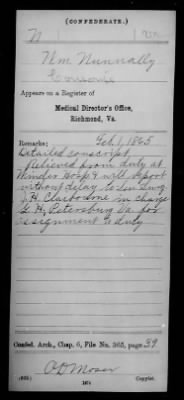 (CONFEDERATE.)
N 1 Va.
Wm Nunnally
Conscript
Appears on a Register of
Medical Director's Office,
Richmond, Va.
Remarks: Feb. 1, 1865
Detailed conscript
Relieved from duty at
Winder Hosp & will report
without delay to Sen Surg
J. H. Claiborne in charge
G. H. Petersburg Va. for
assignment to duty
Confed. Arch., Chap. 6, File No. 365, page 39
O D Moser
Copyist.